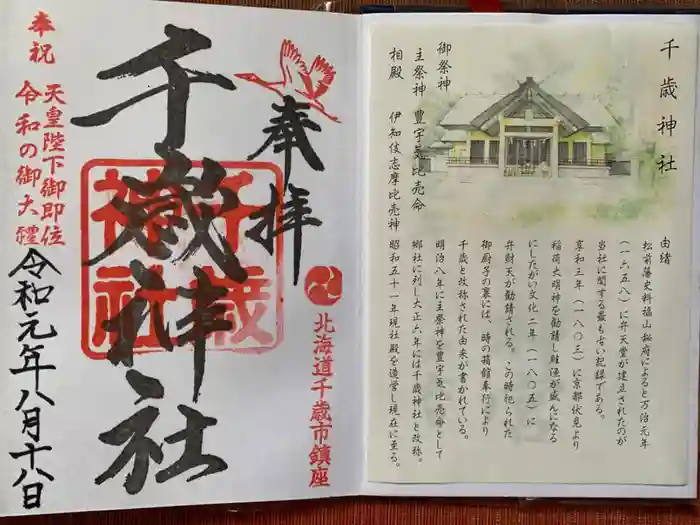 千歳神社
御祭神
主祭神 豊宇気比売命
相殿 伊知伎志摩比売神
由緒
松前藩史料福山秘府によると万治元年
(一六五八)に弁天堂が建立されたのが
当社に関する最も古い記録である。
享和三年(一八〇三)に京都伏見より
稲荷大明神を勧請し鮭漁が盛んになる
にしたがい文化二年(一八〇五)に
弁財天が勧請される。この時祀られた
御厨子の裏には、時の箱館奉行により
千歳と改称された由来が書かれている。
明治八年に主祭神を豊宇気比売命として
郷社に列し大正六年には千歳神社と改称。
昭和五十一年現社殿を造営し現在に至る。
奉拝
北海道千歳市鎮座
千歳神社
千歳神社
奉祝
天皇陛下御即位
令和の御大禮
令和元年八月十八日